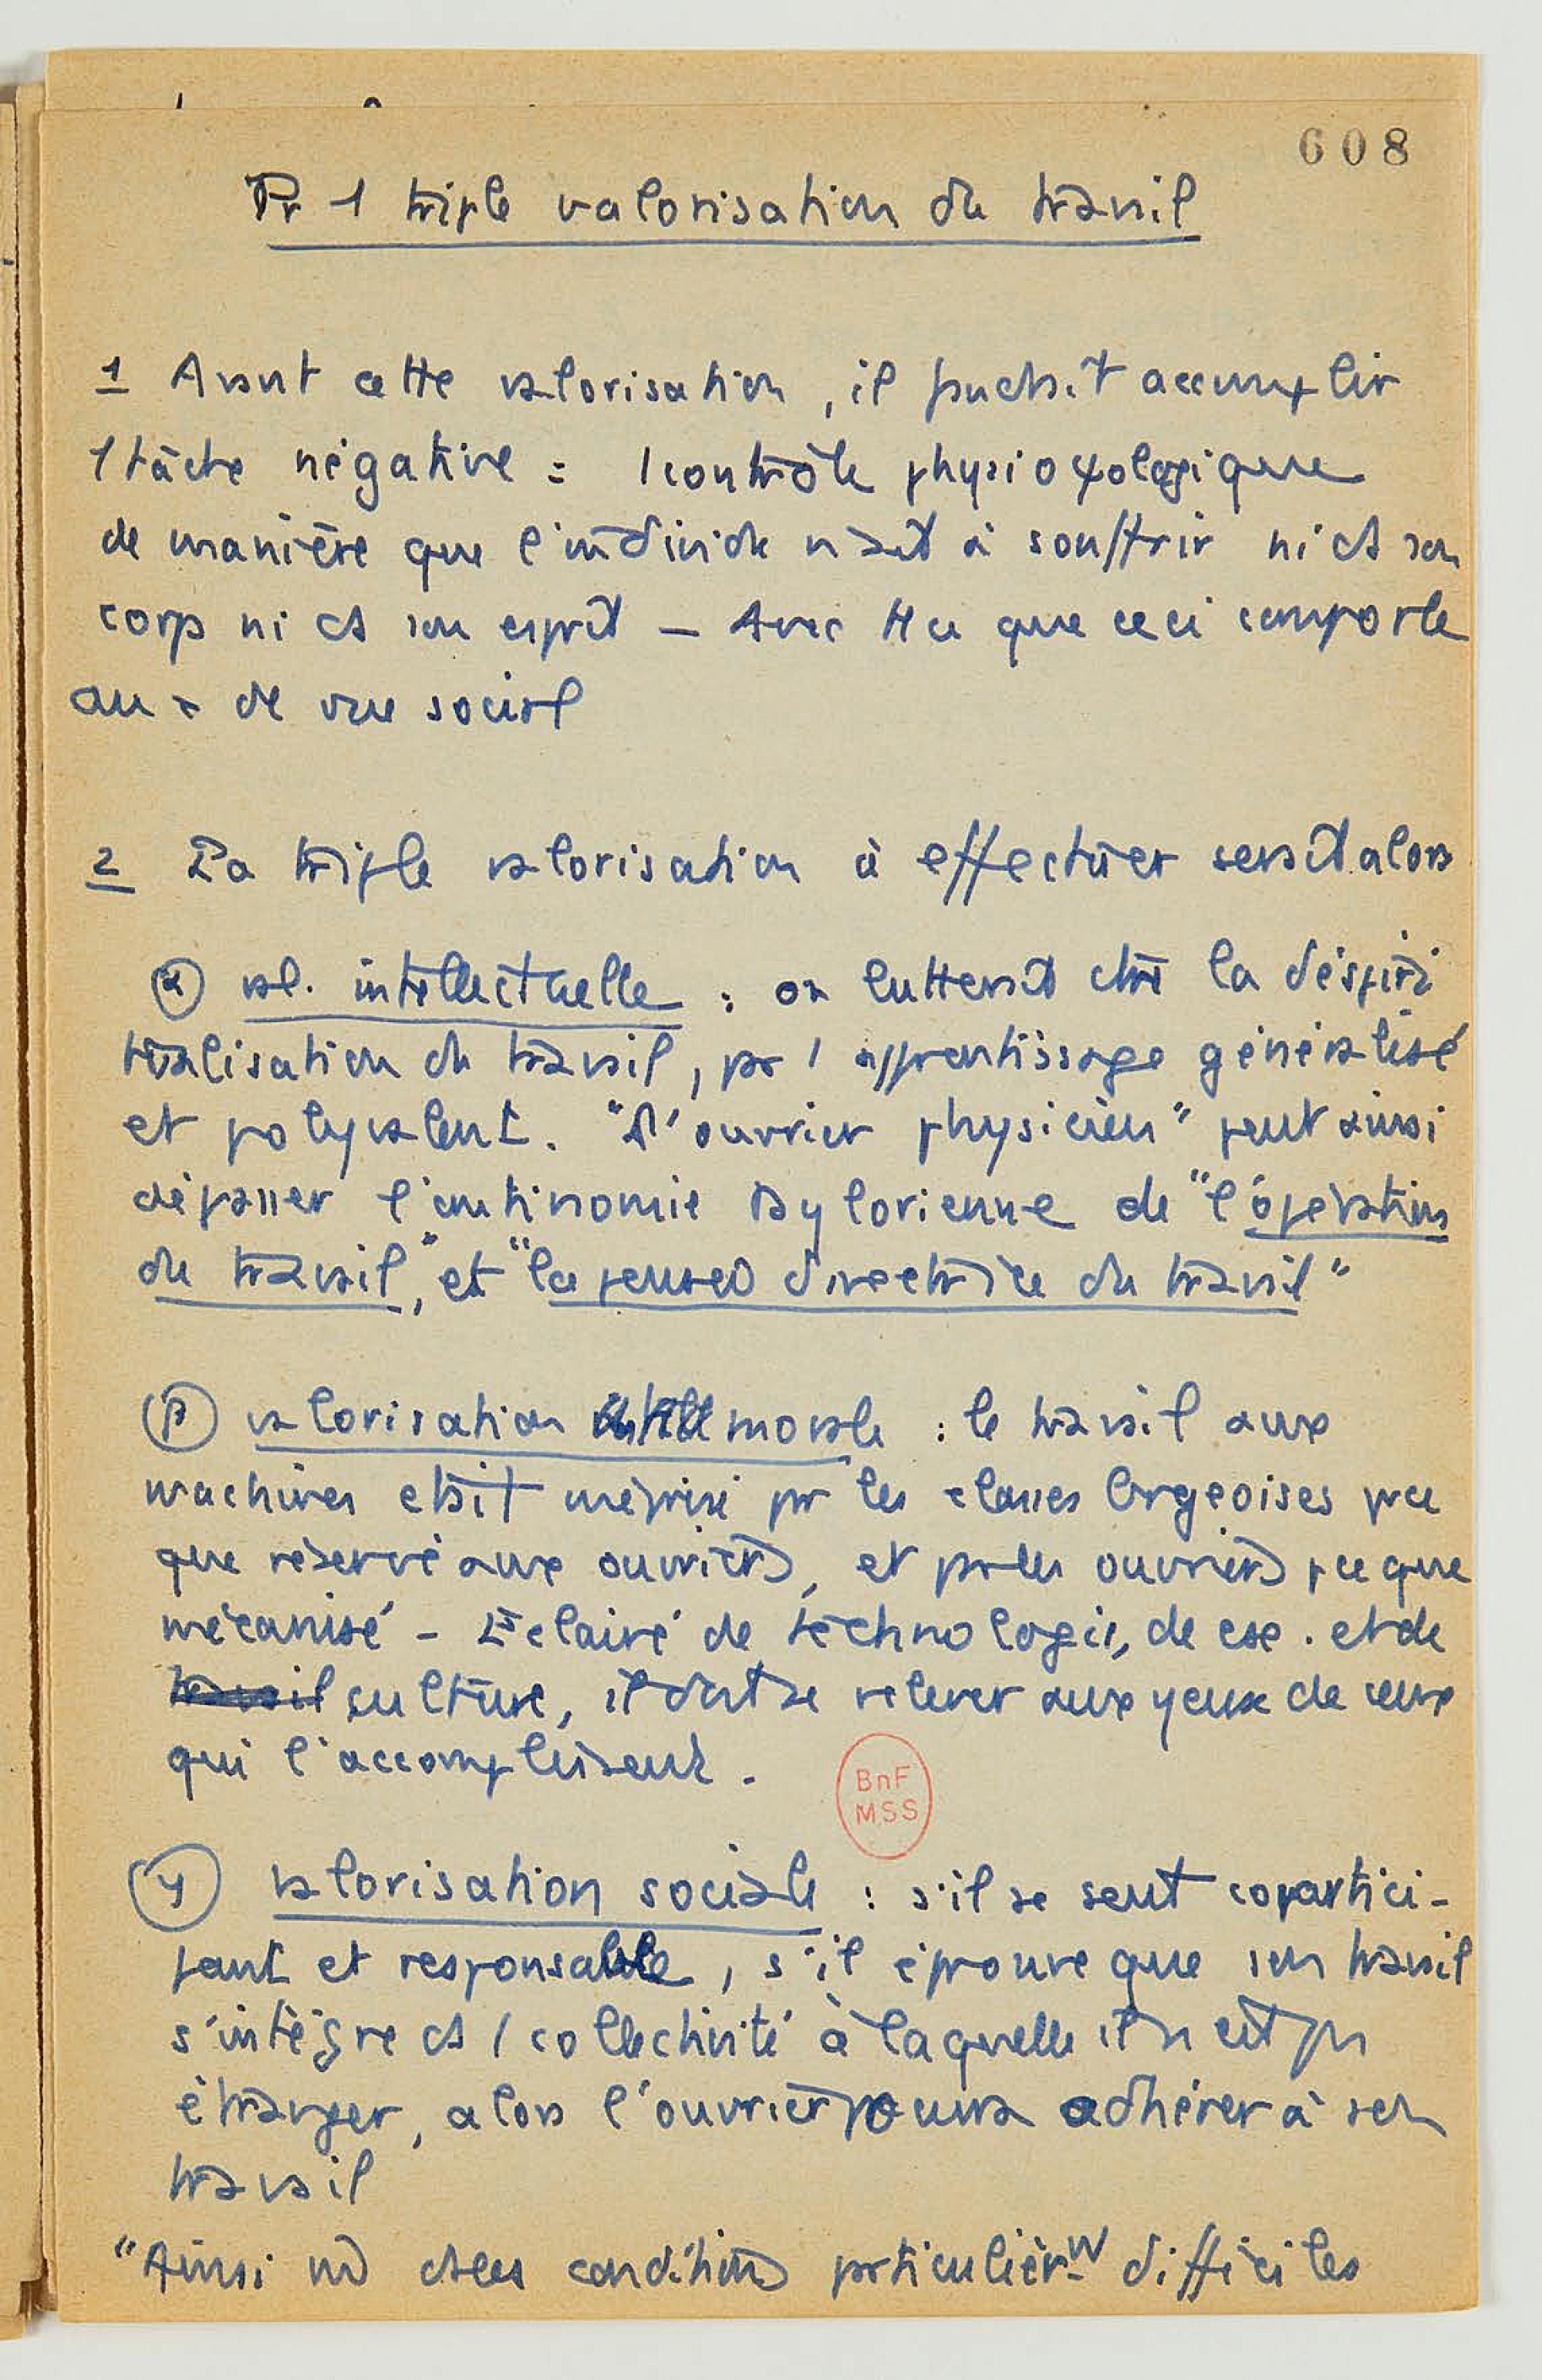 608
Pr 1 triple valorisation du travail
1 Avant cette valorisation, il faudrait accomplir
1 tâche négative : 1 contrôle physioψologique
de manière que l'individu n'ait à souffrir ni ds son
corps ni ds son esprit — Avec tt ce que ceci comporte
au x de vue social
2 La triple valorisation à effectuer serait alors
α val. intellectuelle : on lutterait ctre la déspiri
tualisation du travail, par 1 apprentissage généralisé
et polyvalent. "L'ouvrier physicien" peut ainsi
dépasser l'antinomie taylorienne de "l'opération
du travail" et "la pensée directrice du travail"
β valorisation morale : le travail aux
machines était méprisé par les classes brgeoises parce
que réservé aux ouvriers, et par les ouvriers pce que
mécanisé - Eclairé de technologie, de et de
travail culture, il doit se relever aux yeux de ceux
qui l'accomplissent.
BnF
MSS
γ valorisation sociale : s'il se sent copartici-
pant et responsable, s'il éprouve que son travail
s'intègre ds 1 collectivité à laquelle il n'est pas
étranger, alors l'ouvrier pourra adhérer à son
travail
"Ainsi ds les conditions particulièrt difficiles